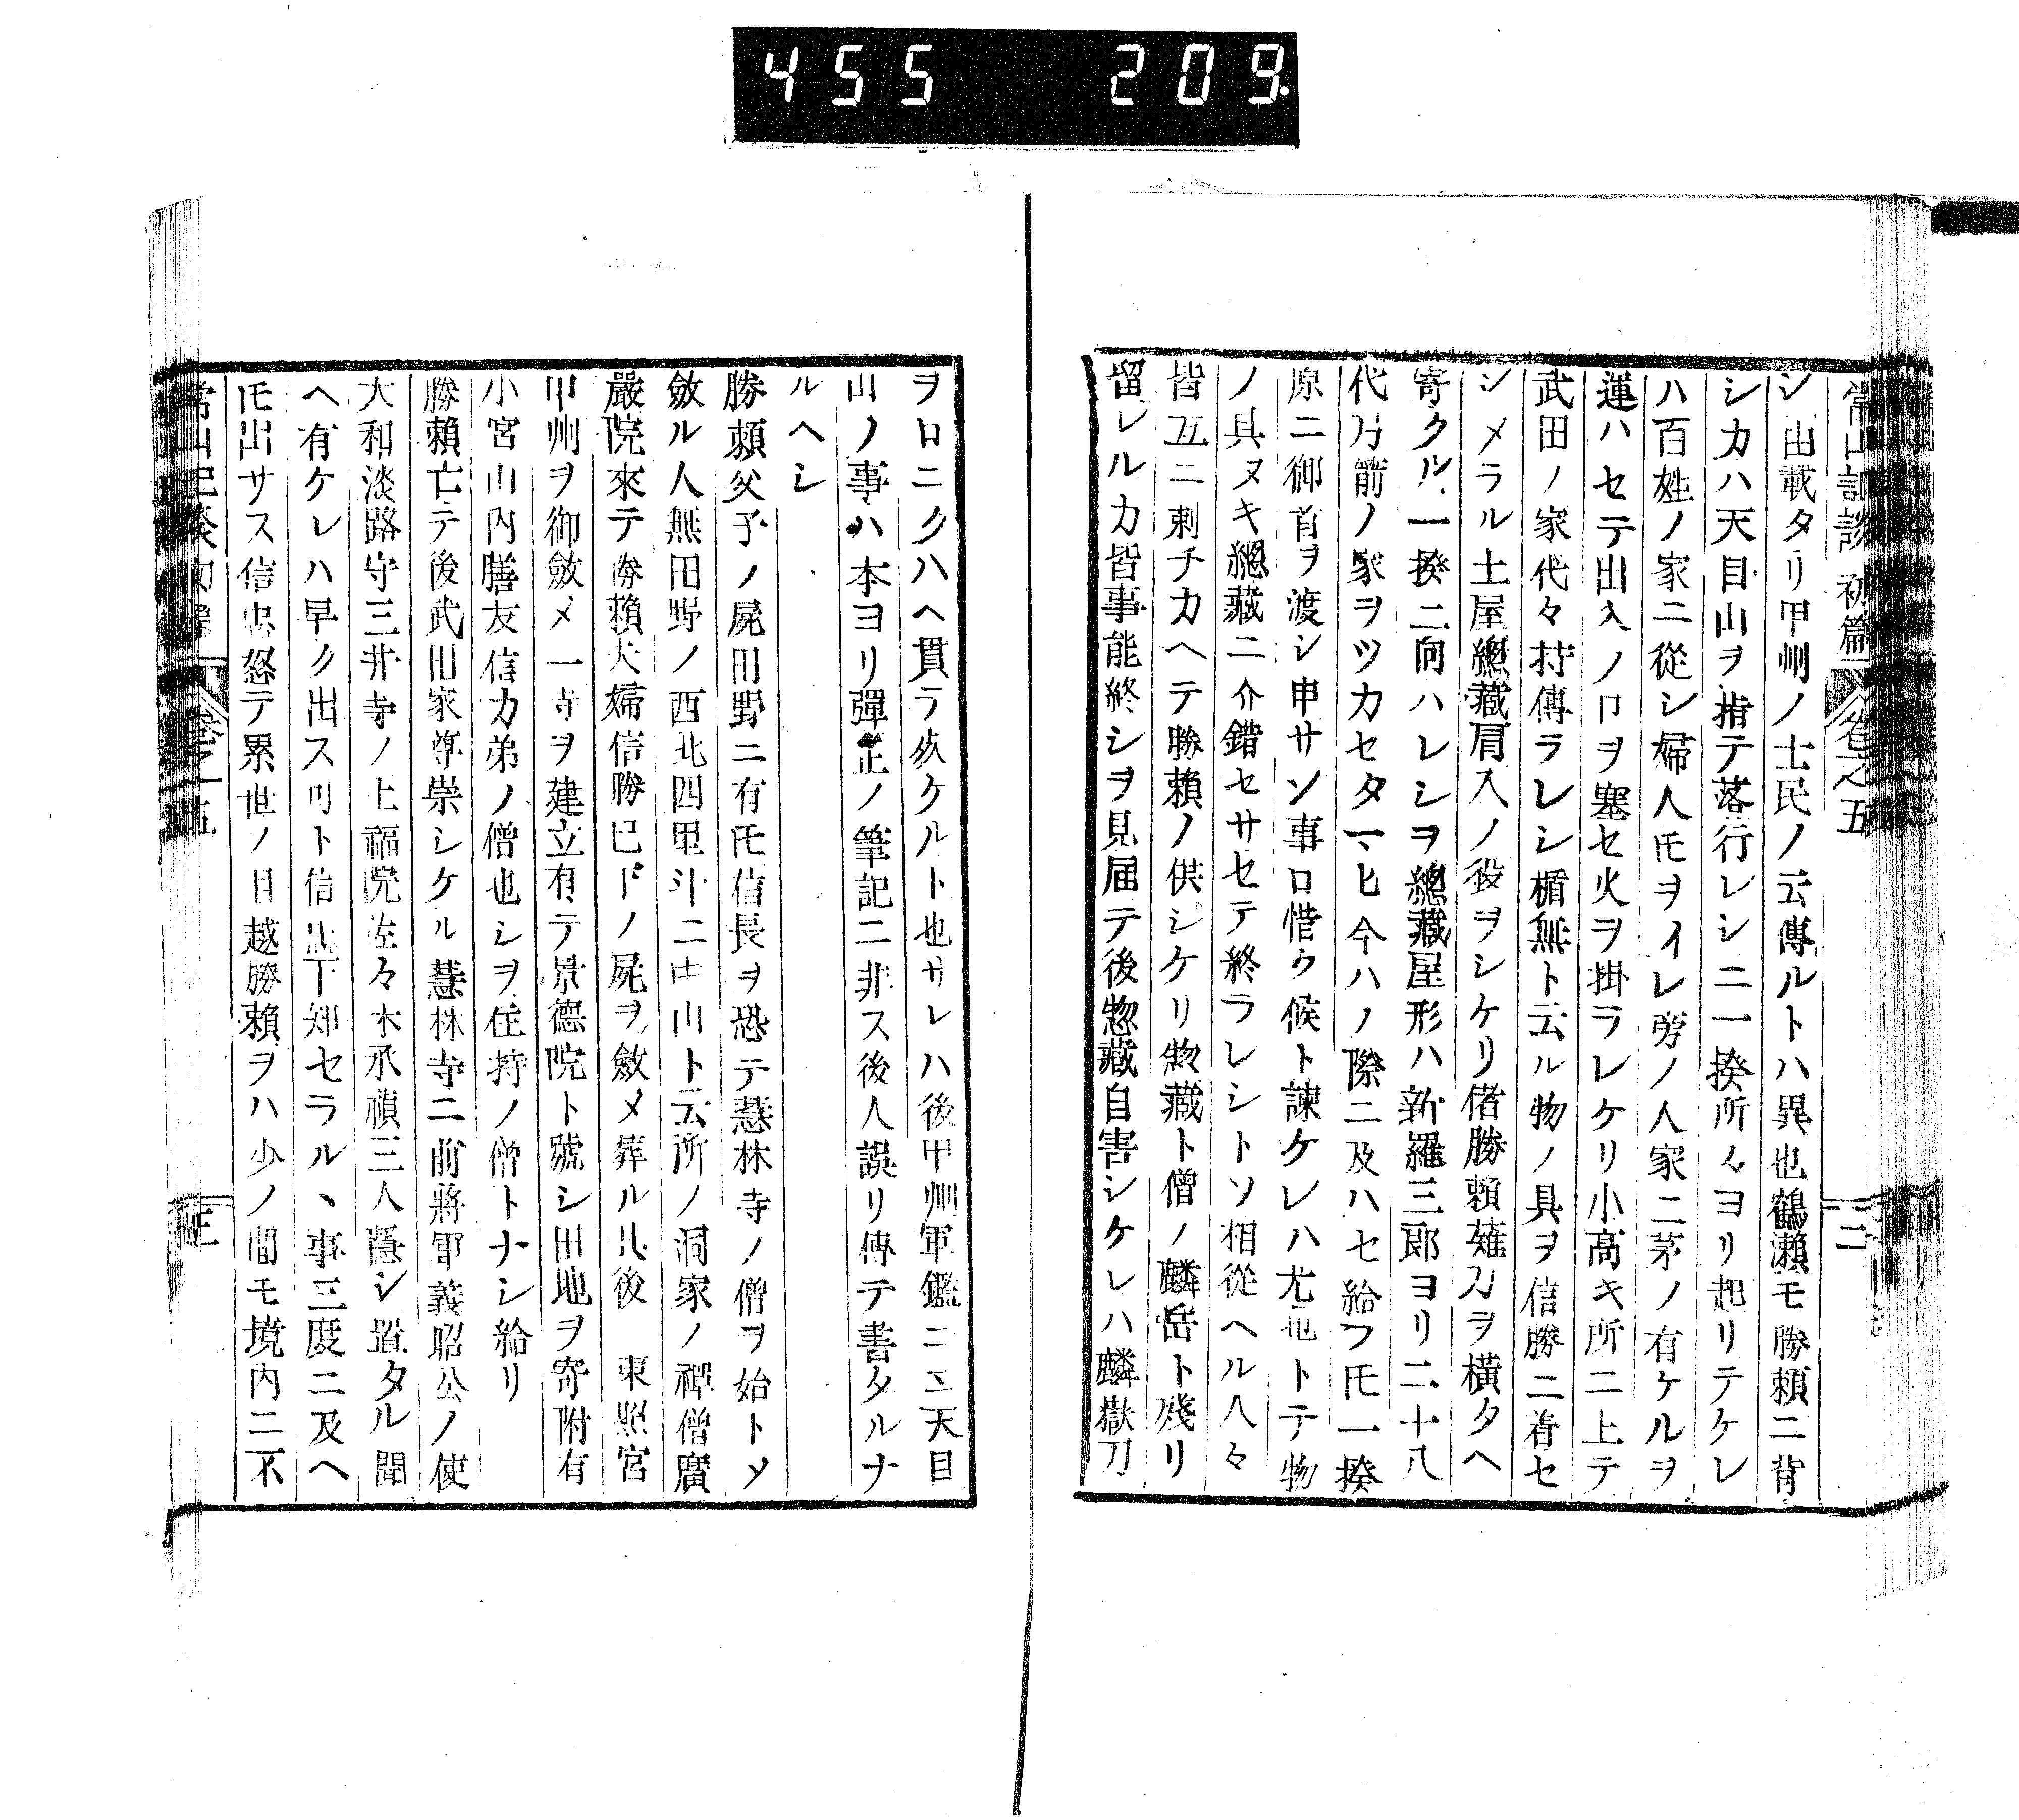 455 209.
常山記談 初篇 卷之五 二
シ由載タリ甲州ノ士民ノ云傳ルトハ異也鶴瀬モ勝賴ニ背
シカハ天目山ヲ指テ落行レシニ一揆所々ヨリ起リテケレ
ハ百姓ノ家ニ從シ婦人𪜈ヲイレ旁ノ人家ニ茅ノ有ケルヲ
運ハセテ出入ノ口ヲ塞セ火ヲ掛ラレケリ小高キ所ニ上テ
武田ノ家代々持傳ラレシ楯無ト云ル物ノ具ヲ信勝ニ着セ
シメラル土屋總藏肩入ノ役ヲシケリ偖勝賴薙刀ヲ橫タヘ
寄クル一揆ニ向ハレシヲ總藏屋形ハ新羅三郎ヨリ二十八
代弓箭ノ家ヲツカセタマヒ今ハノ際ニ及ハセ給フ𪜈一揆
原ニ御首ヲ渡シ申サン事口惜ク候ト諫ケレハ尤也トテ物
ノ具ヌキ總藏ニ介錯セサセテ終ラレシトソ相從ヘル人々
皆互ニ刺チカヘテ勝賴ノ供シケリ惣藏ト僧ノ麟岳ト殘リ
留レルカ皆事能終シヲ見届テ後惣藏自害シケレハ麟嶽刀
ヲロニクハヘ貫ラ死ケルト也サレハ後甲州軍鑑ニ云天目
山ノ事ハ本ヨリ彈正ノ筆記ニ非ス後人誤リ傳テ書タルナ
ルヘシ
勝賴父子ノ屍田野ニ有𪜈信長ヲ恐テ惠林寺ノ僧ヲ始トメ
斂ル人無田野ノ西北四里斗ニ中山ト云所ノ洞家ノ禪僧廣
嚴院來テ勝賴夫婦信勝已下ノ屍ヲ斂メ葬ル其後 東照宮
甲州ヲ御斂メ一寺ヲ建立有テ景德院ト號シ田地ヲ寄附有
小宮山內膳友信カ弟ノ僧也シヲ住持ノ僧トナシ給リ
勝賴亡テ後武田家尊崇シケル慧林寺ニ前將軍義昭公ノ使
大和淡路守三井寺ノ上福院佐々木承禎三人隱シ置タル聞
ヘ有ケレハ早ク出ス可ト信忠下知セラルヽ事三度ニ及ヘ
𪜈出サス信忠怒テ累世ノ日越勝賴ヲハ少ノ間モ境内ニ不
常山記談初篇 卷之五 三